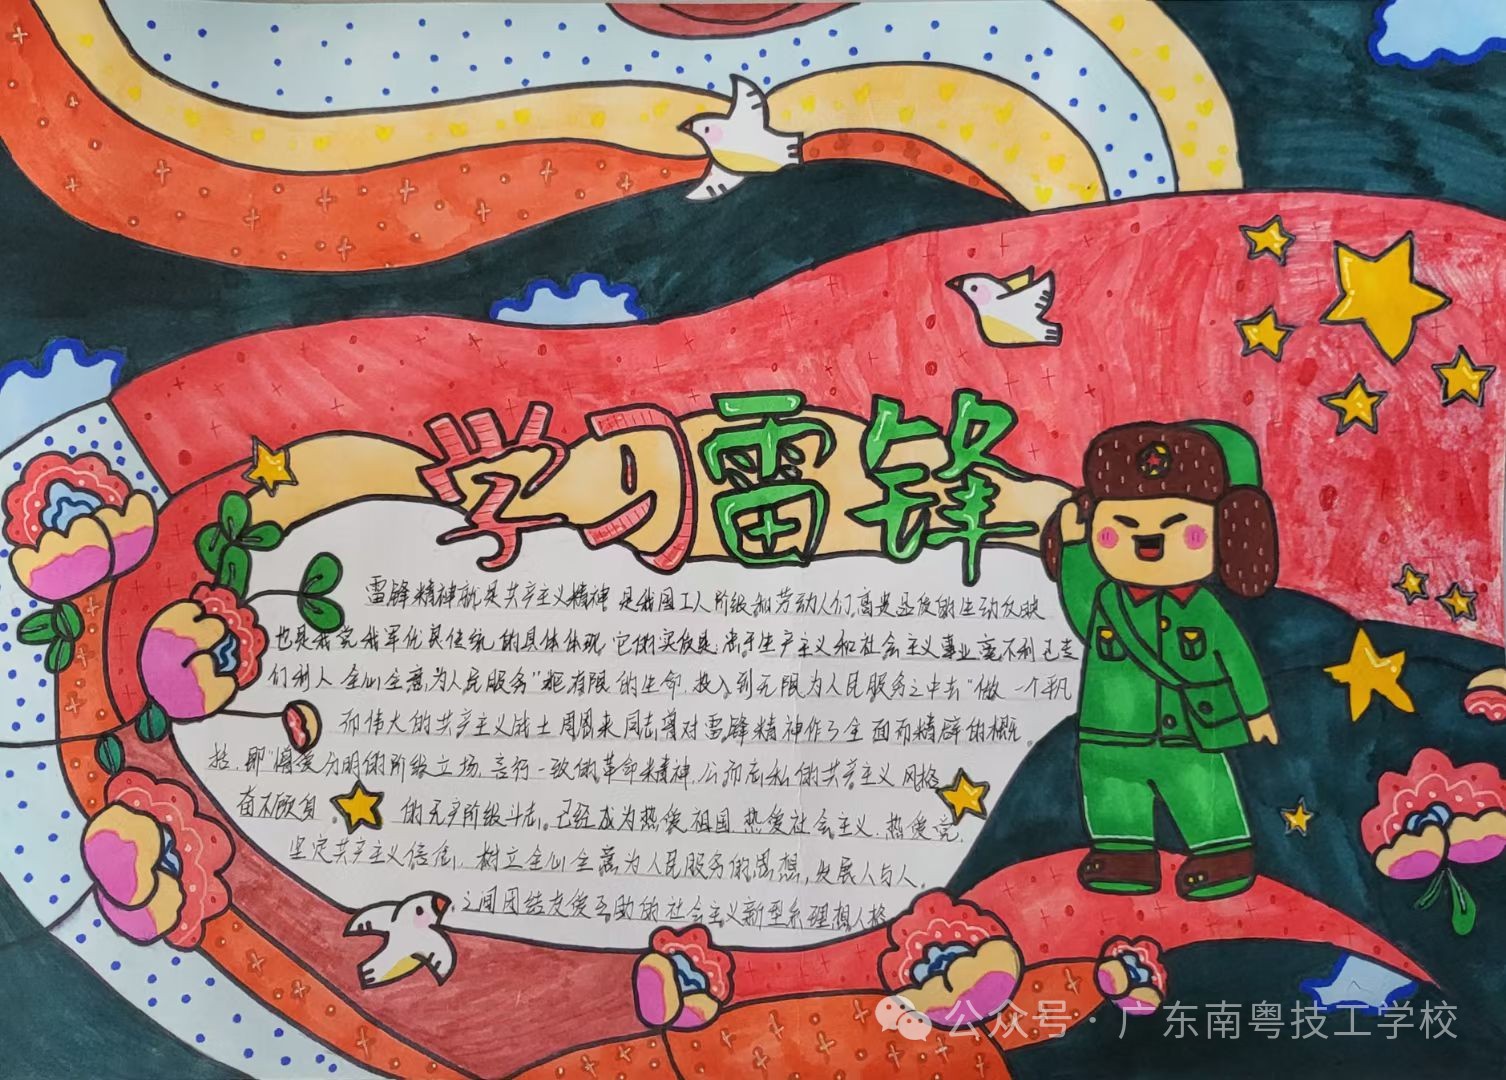 学习雷锋
雷锋精神就是共产主义精神 是我国工人阶级和劳动人们高贵品质的生动反映
也是我党我军优良传统的具体体现,它的实质是:忠于生产主义和社会主义事业,毫不利己专
们利人 全心全意,为人民服务"把有限的生命,投入到无限为人民服务之中去"做一个平凡
而伟大的共产主义战士 周恩来同志曾对雷锋精神作了全面而精辟的概
括,即"憎爱分明的阶级立场,言行一致的革命精神,公而忘私的共产主义风格
奋不顾身 的无产阶级斗志。已经成为热爱祖国 热爱社会主义,热爱党,
坚定共产主义信念,树立全心全意为人民服务的思想,发展人与人。
之间团结友爱互助的社会主义新型 理想人格
公众号·广东南粤技工学校